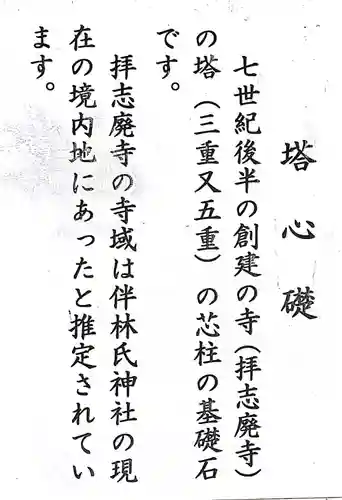 塔心礎
七世紀後半の創建の寺(拝志廃寺)
の塔(三重又五重)の芯柱の基礎石
です。
拝志廃寺の寺域は伴林氏神社の現
在の境内地にあったと推定されてい
ます。